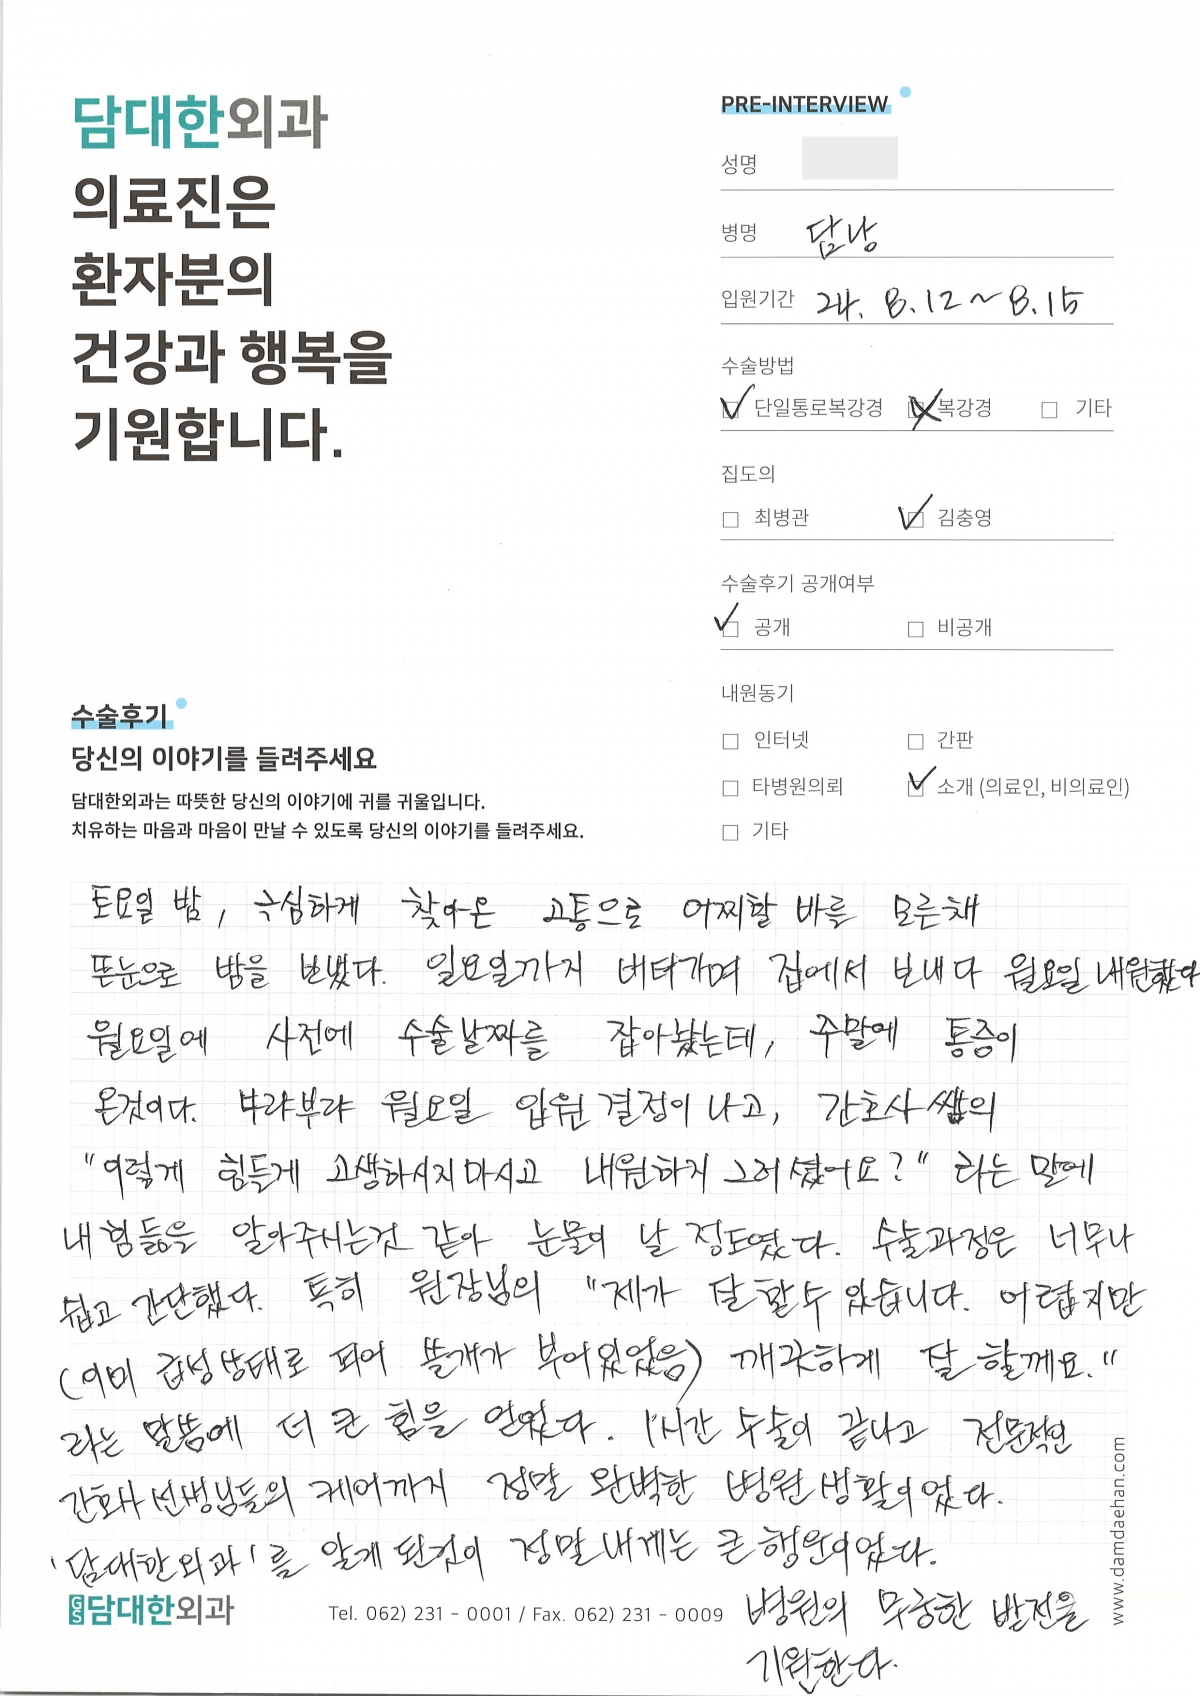 담대한외과
의료진은
환자분의
건강과 행복을
기원합니다.
PRE-INTERVIEW
성명
병명 담낭
입원기간 24. 8. 12 ~ 8. 15
수술방법
단일통로복강경 복강경 기타
집도의
최병관 김충영
수술후기 공개여부
공개 비공개
내원동기
인터넷 간판
타병원의뢰 소개 (의료인, 비의료인)
기타
수술후기
당신의 이야기를 들려주세요
담대한외과는 따뜻한 당신의 이야기에 귀를 귀울입니다.
치유하는 마음과 마음이 만날 수 있도록 당신의 이야기를 들려주세요.
토요일 밤, 극심하게 찾아온 고통으로 어찌할 바를 모른채
뜬눈으로 밤을 보냈다. 일요일까지 버텨가며 집에서 보내다 월요일 내원했다
월요일에 사전에 수술날짜를 잡아놨는데, 주말에 통증이
온것이다. 부랴부랴 월요일 입원 결정이 나고, 간호사 쌤의
"이렇게 힘들게 고생하시지마시고 내원하지 그러셨어요?" 라는 말에
내 힘듦을 알아주시는것 같아 눈물이 날 정도였다. 수술과정은 너무나
쉽고 간단했다. 특히 원장님의 "제가 잘 할 수 있습니다. 어렵지만
(이미 급성상태로 피어 쓸개가 부어있었음) 깨끗하게 잘 할께요."
라는 말씀에 더 큰 힘을 얻었다. 1시간 수술이 끝나고 전문적인
간호사 선생님들의 케어까지 정말 완벽한 병원 생활이었다.
'담대한외과'를 알게 된것이 정말 내게는 큰 행운이었다.
병원의 무궁한 발전을
기원한다.
GS담대한외과
Tel. 062) 231 - 0001 / Fax. 062) 231 - 0009
www.damdaehan.com